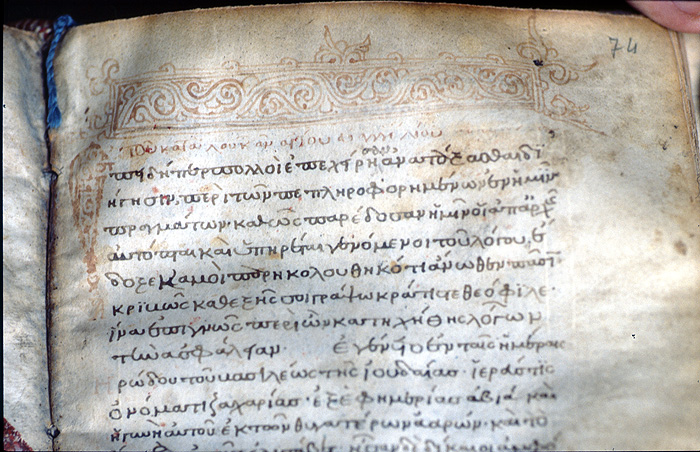 74
κατὰ λουκαν αγιον
πειδήπερ πολλοὶ ἐπεχείρησαν ἀνατάξασθαι δι
ήγησιν, περὶ τῶν πεπληροφορημένων ἐν ἡμῖν
πραγμάτων· καθὼς παρέδοσαν ἡμῖν οἱ ἀπαρχῆς
αὐτόπται καὶ ὑπηρέται γενόμενοι τοῦ λόγου· ἔ
δοξε κἀμοὶ παρηκολουθηκότι ἄνωθεν πᾶσιν
κριβῶς καθεξῆς σοι γράψαι κράτιστε θεόφιλε·
ἵνα ἐπιγνῶς περὶ ὧν κατηχήθης λόγων
τὴν ἀσφάλειαν. Ἐγένετο ἐν ταῖς ἡμέραις
ρώδου τοῦ βασιλέως τῆς ἰουδαίας· ἱερεύς τις
ὀνόματι ζαχαρίας· ἐξ ἐφημερίας ἀβιά· καὶ
ἡ γυνὴ αὐτοῦ ἐκ τῶν θυγατέρων ἀαρών· καὶ τὸ